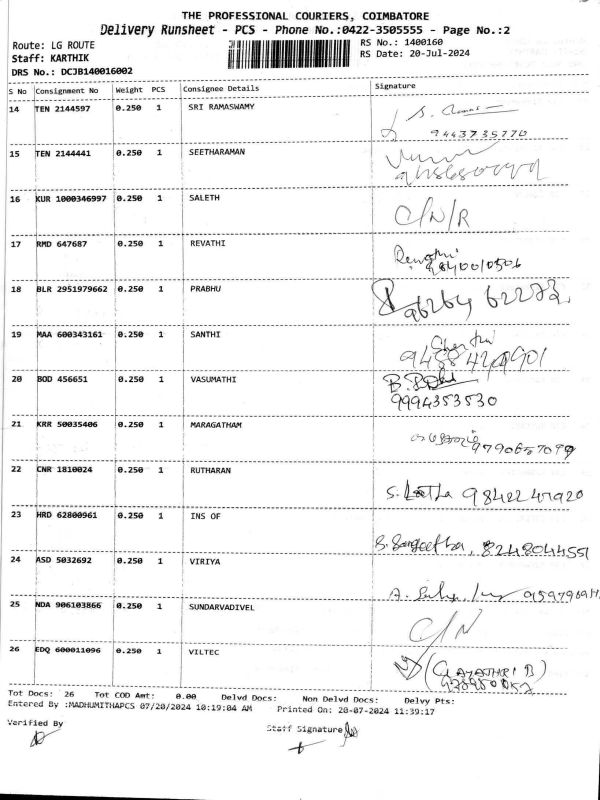 THE PROFESSIONAL COURIERS, COIMBATORE
Delivery Runsheet - PCS - Phone No.:0422-3505555 - Page No.:2
Route: LG ROUTE
RS No.: 1400160
Staff: KARTHIK
RS Date: 20-Jul-2024
DRS No.: DCJB140016002
S No Consignment No Weight PCS Consignee Details Signature
14 TEN 2144597 0.250 1 SRI RAMASWAMY
9443735770
15 TEN 2144441 0.250 1 SEETHARAMAN
16 KUR 1000346997 0.250 1 SALETH C/N/R
17 RMD 647687 0.250 1 REVATHI Revathi
9840010506
18 BLR 2951979662 0.250 1 PRABHU
96264 62273
19 MAA 600343161 0.250 1 SANTHI
20 BOD 456651 0.250 1 VASUMATHI
9994353530
21 KRR 50035406 0.250 1 MARAGATHAM
9790657099
22 CNR 1810024 0.250 1 RUTHARAN
S. Latha 9842247920
23 HRD 62800961 0.250 1 INS OF
S. Sangeetha, 8248044551
24 ASD 5032692 0.250 1 VIRIYA
25 NDA 906103866 0.250 1 SUNDARVADIVEL C/N
26 EDQ 600011096 0.250 1 VILTEC (GAYATHRI B)
Tot Docs: 26 Tot COD Amt: 0.00 Delvd Docs: Non Delvd Docs: Delvy Pts:
Entered By :MADHUMITHAPCS 07/20/2024 10:19:04 AM Printed On: 20-07-2024 11:39:17
Verified By Staff Signature